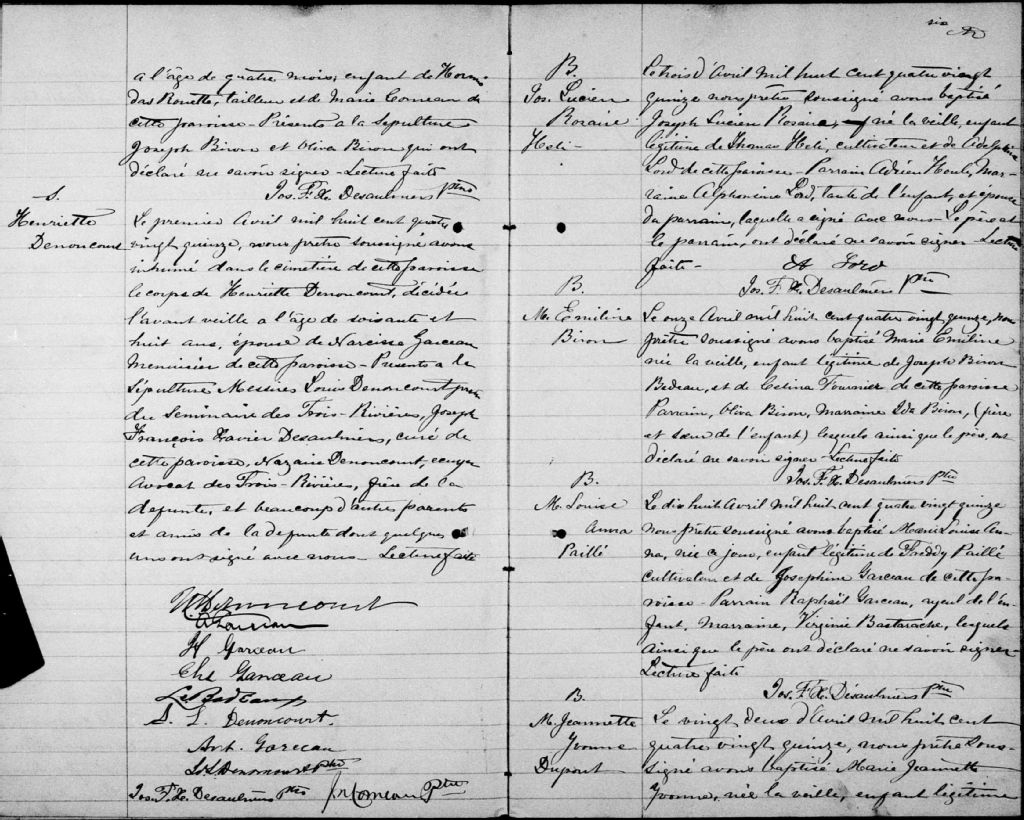 a l'âge de quatre mois, enfant de Hormis-
das Rouette, tailleur et de Marie Comeau de
cette paroisse - Présents a la Sépulture
Joseph Biron et Oliva Biron qui ont
déclaré ne savoir signer - Lecture faite
Jos. F. X. Desaulniers Ptre
S.
Henriette
Denoncourt
Le premier Avril mil huit cent quatre
vingt quinze, nous prêtre soussigné avons
inhumé dans le cimetière de cette paroisse
le corps de Henriette Denoncourt, décédée
l'avant veille a l'âge de soixante et
huit ans, épouse de Narcisse Garceau
Menuisier de cette paroisse - Présents a la
Sépulture Messires Louis Denoncourt ptre
du Seminaire des Trois-Rivières, Joseph
François Xavier Desaulniers, curé de
cette paroisse, Nazaire Denoncourt, ecuyer
Avocat des Trois-Rivières, frère de la
defunte, et beaucoup d'autre parents
et amis de la defunte dont quelques
uns ont signé avec nous - Lecture faite
N. L. Denoncourt
Garceau
H Garceau
Chs Garceau
S. L. Denoncourt.
Art. Garceau
Denoncourt Ptre
Jos. F. X. Desaulniers Ptre
Comeau Ptre
six
B.
Jos. Lucien
Rosaire
Heli-
Le trois d Avril mil huit cent quatre vingt
quinze nous prêtre soussigné avons baptisé
Joseph Lucien Rosaire, né la veille, enfant
légitime de Thomas Heli, cultivateur et de
Lord de cette paroisse - Parrain Adrien Houle, Mar-
raine Alphonsine Lord, tante de l'enfant, et épouse
du parrain, laquelle a signé avec nous - Le père et
le parrain, ont déclaré ne savoir signer - Lecture
faite - A Lord
Jos. F. X. Desaulniers Ptre
B.
M. Emiline
Biron
Le onze Avril mil huit cent quatre vingt quinze, nous
prêtre soussigné avons baptisé Marie Emiline
née la veille, enfant légitime de Joseph Biron
Bedeau, et de Celina Fournier de cette paroisse
Parrain, Oliva Biron, Marraine Ida Biron, (frère
et sœur de l'enfant) lesquels ainsi que le père, ont
déclaré ne savoir signer - Lecture faite
Jos. F. X. Desaulniers Ptre
B.
M. Louise
Anna
Paillé
Le dix huit Avril mil huit cent quatre vingt quinze
nous prêtre soussigné avons baptisé Marie Louise An-
na, née ce jour, enfant légitime de Freddy Paillé
cultivateur et de Josephine Garceau de cette pa-
roisse - Parrain Raphaël Garceau, ayeul de l'en-
fant. Marraine, Virginie Bastarache, lesquels
ainsi que le père ont déclaré ne savoir signer -
Lecture faite
Jos. F. X. Désaulniers Ptre
B.
M. Jeannette
Yvonne
Dupont
Le vingt deux d'Avril mil huit cent
quatre vingt quinze, nous prêtre sous-
signé avons baptisé Marie Jeannette
Yvonne, née la veille, enfant légitime